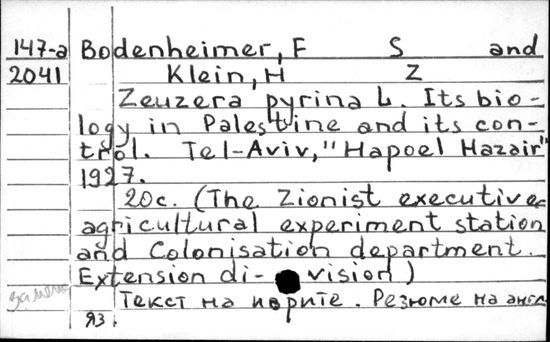 147-а Bodenheimer, F S and
2041 Klein, H Z
Zeuzera pyrina L. Its bio-
logy in Palestine and its con-
trol. Tel-Aviv, "Hapoel Hazair"
1927.
20c. (The Zionist executive
agricultural experiment station
and Colonisation department.
Extension di- vision)
Текст на иврите. Резюме на англ
яз.